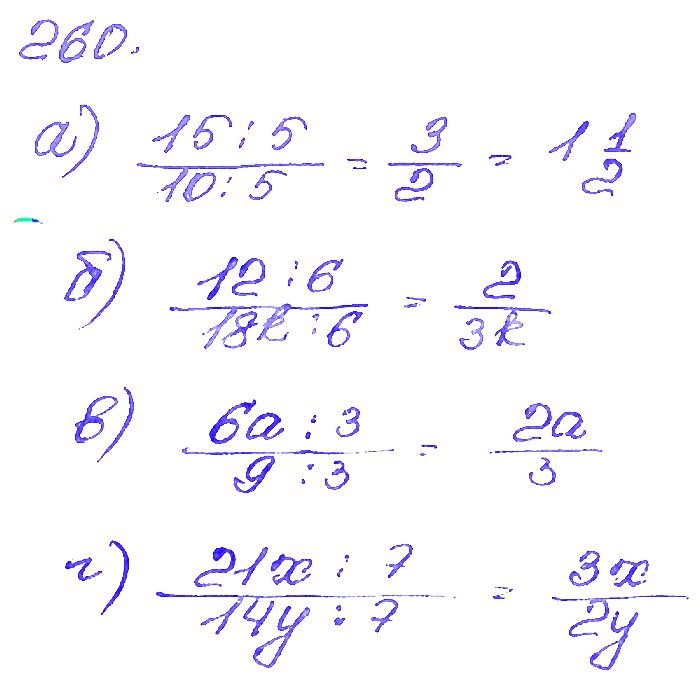 260.
а) 15:5/10:5 = 3/2 = 1 1/2
б) 12:6/18k:6 = 2/3k
в) 6a:3/9:3 = 2a/3
г) 21x:7/14y:7 = 3x/2y